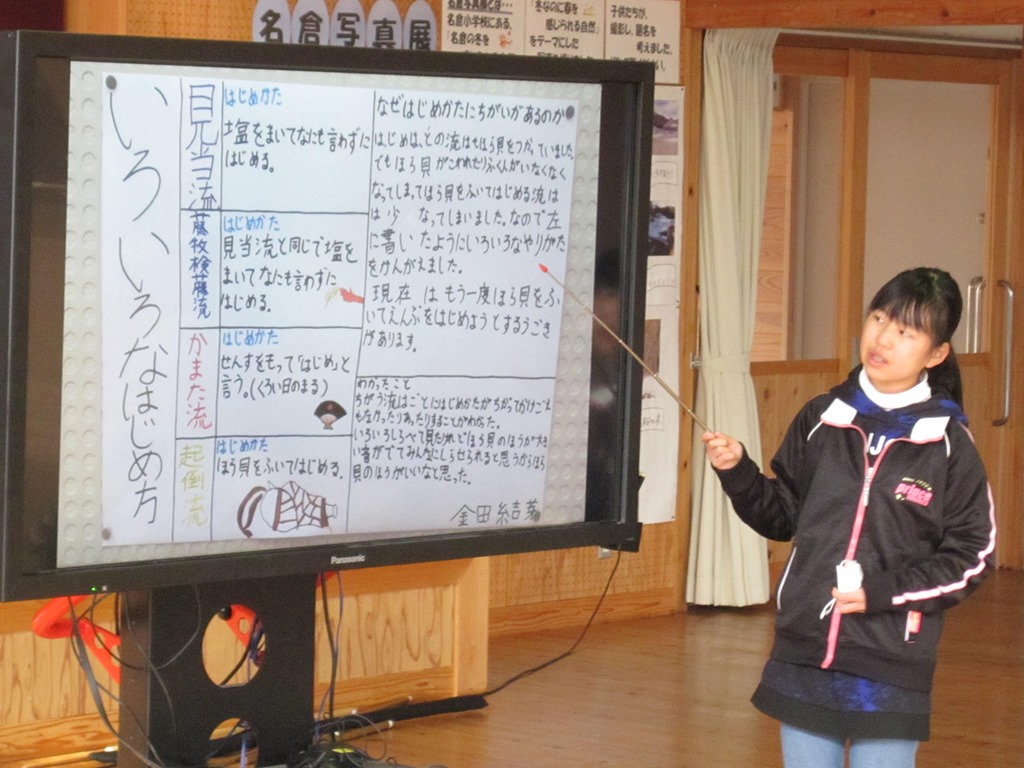 名倉写真展
名倉写真展とは…
名倉小学校にある、
「名倉の冬を
「冬なのに春を
感じられる自然」
をテーマにした
子供たちが、
撮影し、題名を
考えました。
いろいろなはじめ方
見当流
はじめかた
塩をまいてなにも言わずに
はじめる。
藤牧検藤流
はじめかた
見当流と同じで塩を
まいてなにも言わずに
はじめる。
かまた流
はじめかた
せんすをもって「はじめ」と
言う。(くろい日のまる)
起倒流
はじめかた
ほう貝をふいてはじめる。
なぜはじめかたにちがいがあるのか
はじめは、どの流はもほら貝をつかっていました。
でもほら貝がこわれたりふく人がいなくなく
なってしまってほら貝をふいてはじめる流は
は少なってしまいました。なので左
に書いたようにいろいろなやりかた
をけんがえました。
現在はもう一度ほら貝をふ
いてえんぶをはじめようとするうごき
があります。
わかったこと
ちがう流はごとにはじめかたがちがってかけごえ
もなかったりあったりすることがわかた。
いろいろしらべて見たけれどほら貝のほうが大き
い音がでてみんなにしらせられると思うからほら
貝のほうがいいなと思った。
金田結菜
Panasonic
prince